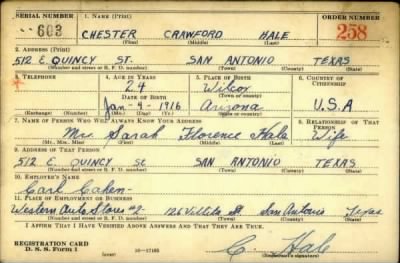 SERIAL NUMBER 1. NAME (Print) ORDER NUMBER
603 CHESTER CRAWFORD HALE 258
(First) (Middle) (Last)
2. ADDRESS (Print)
512 E. QUINCY ST. SAN ANTONIO TEXAS
(Number and street or R. F. D. number) (Town) (County) (State)
3. TELEPHONE 4. AGE IN YEARS 5. PLACE OF BIRTH 6. COUNTRY OF CITIZENSHIP
24 Wilcox
DATE OF BIRTH (Town or county)
Jan-9-1916 Arizona U.S.A
(Exchange) (Number) (Mo.) (Day) (Yr.) (State or country)
7. NAME OF PERSON WHO WILL ALWAYS KNOW YOUR ADDRESS 8. RELATIONSHIP OF THAT PERSON
Mrs. Sarah Florence Hale Wife
(Mr., Mrs., Miss) (First) (Middle) (Last)
9. ADDRESS OF THAT PERSON
512 E. QUINCY St SAN ANTONIO TEXAS
(Number and street or R. F. D. number) (Town) (County) (State)
10. EMPLOYER'S NAME
Carl Cohen
11. PLACE OF EMPLOYMENT OR BUSINESS
Western Auto Stores #2- 126 Villita St. San Antonio Texas
(Number and street or R. F. D. number) (Town) (County) (State)
I AFFIRM THAT I HAVE VERIFIED ABOVE ANSWERS AND THAT THEY ARE TRUE.
REGISTRATION CARD C. Hale
D. S. S. Form 1 16—17105 (Registrant's signature)